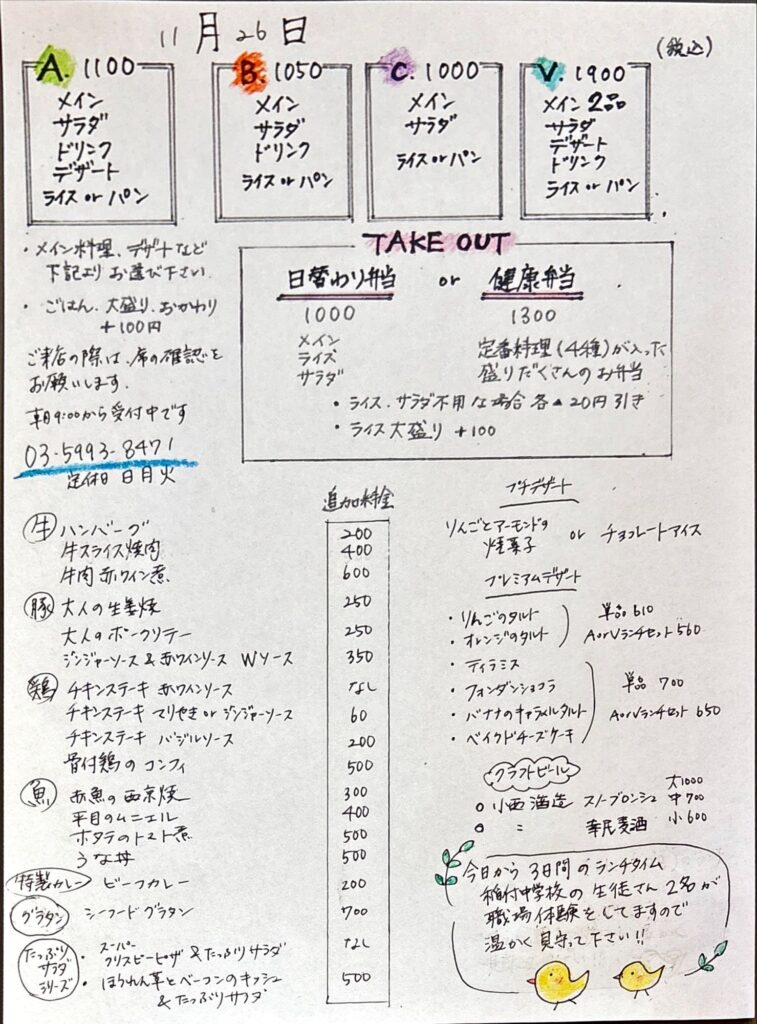 11月26日
(税込)
A. 1100
メイン
サラダ
ドリンク
デザート
ライス or パン
B. 1050
メイン
サラダ
ドリンク
ライス or パン
C. 1000
メイン
サラダ
ライス or パン
V. 1900
メイン 2品
サラダ
デザート
ドリンク
ライス or パン
・メイン料理、デザートなど
下記よりお選び下さい
・ごはん、大盛り、おかわり
+100円
ご来店の際は、席の確認を
お願いします.
朝9:00から受付中です
03-5993-8471
定休日 日月火
TAKE OUT
日替わり弁当 or 健康弁当
1000
メイン
ライス
サラダ
1300
定番料理(4種)が入った
盛りだくさんのお弁当
・ライス、サラダ不用な場合 各▲20円引き
・ライス大盛り +100
追加料金
牛 ハンバーグ 200
牛スライス焼肉 400
牛肉赤ワイン煮 600
豚 大人の生姜焼 250
大人のポークソテー 250
ジンジャーソース & 赤ワインソース Wソース 350
鶏 チキンステーキ 赤ワインソース なし
チキンステーキ てりやき or ジンジャーソース 60
チキンステーキ バジルソース 200
骨付鶏のコンフィ 500
魚 赤魚の西京焼 300
平目のムニエル 400
ホタテのトマト煮 500
うな丼 500
特製カレー ビーフカレー 200
グラタン シーフードグラタン 700
たっぷりサラダシリーズ
・スーパークリスピーピザ & たっぷりサラダ なし
・ほうれん草とベーコンのキッシュ
& たっぷりサラダ 500
プチデザート
りんごとアーモンドの
焼菓子 or チョコレートアイス
プレミアムデザート
・りんごのタルト
・オレンジのタルト
単品 610
A or Vランチセット 560
・ティラミス
・フォンダンショコラ
・バナナのキャラメルタルト
・ベイクドチーズケーキ
単品 700
A or Vランチセット 650
クラフトビール
○ 小西酒造 スノーブロンシュ
○ 〃 幸民麦酒
大1000
中700
小600
今日から3日間のランチタイム
稲付中学校の生徒さん2名が
職場体験をしてますので
温かく見守って下さい!!